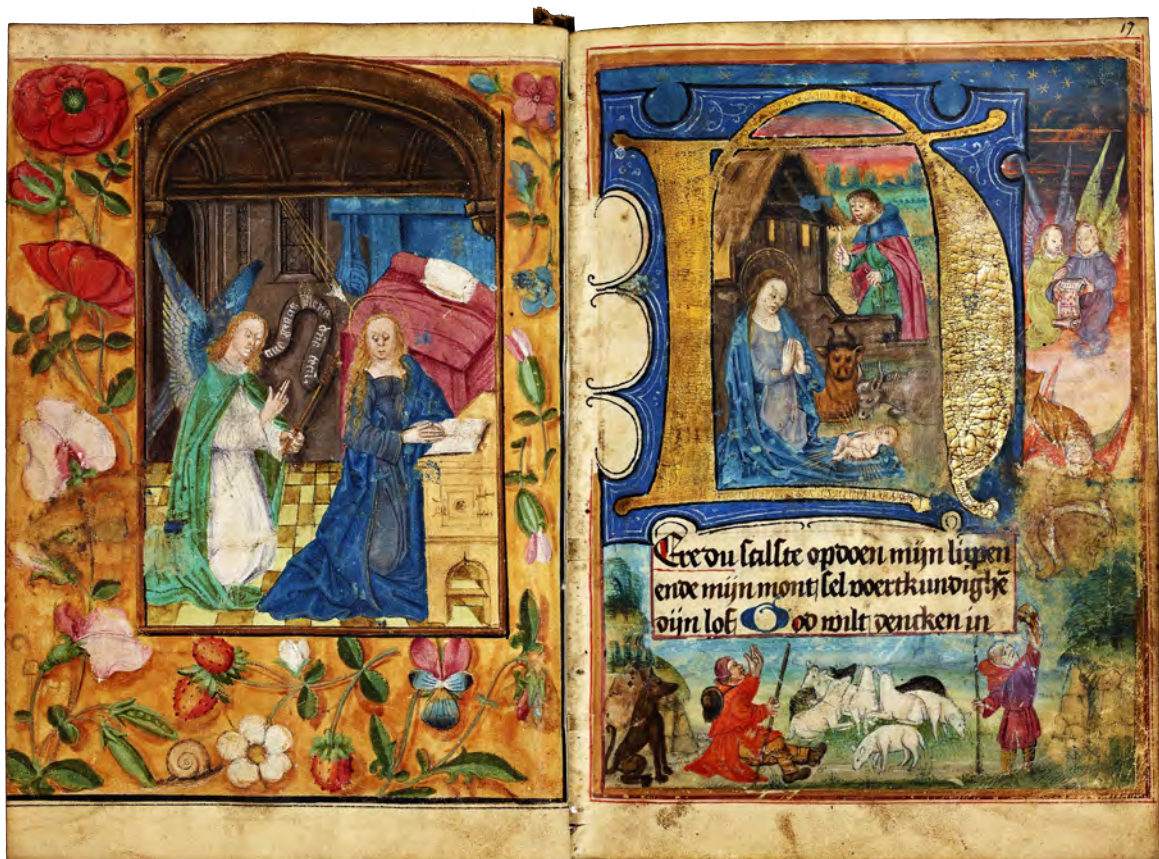 Aue gracia plena
17
H
Ere du ſalſte opdoen mijn lippen
ende mijn mont ſel voertkundighē
dijn lof God wilt dencken in